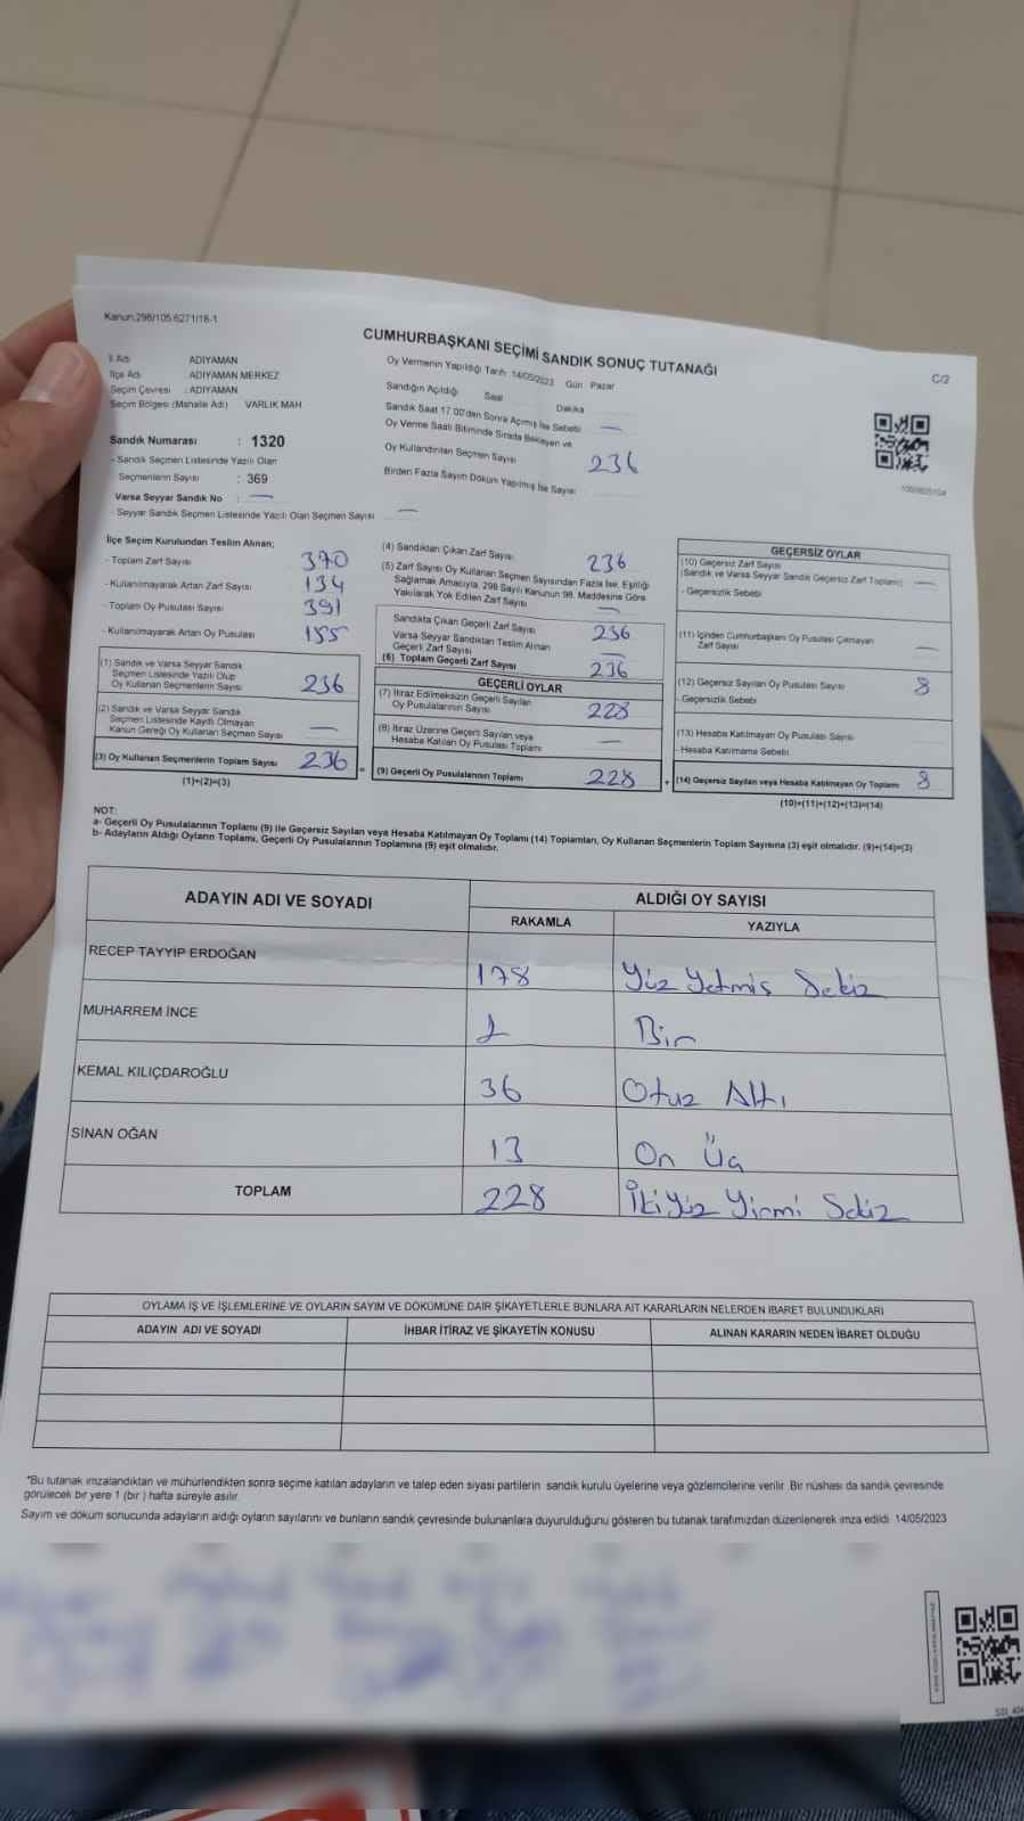 Kanun:298/105.6271/18-1
CUMHURBAŞKANI SEÇİMİ SANDIK SONUÇ TUTANAĞI
C/2
İl Adı ADIYAMAN
İlçe Adı ADIYAMAN MERKEZ
Seçim Çevresi : ADIYAMAN
Seçim Bölgesi (Mahalle Adı) VARLIK MAH
Sandık Numarası : 1320
- Sandık Seçmen Listesinde Yazılı Olan
Seçmenlerin Sayısı : 369
Varsa Seyyar Sandık No : —
Seyyar Sandık Seçmen Listesinde Yazılı Olan Seçmen Sayısı —
Oy Vermenin Yapıldığı Tarih 14/05/2023 Gün Pazar
Sandığın Açıldığı Saat Dakika
Sandık Saat 17.00'den Sonra Açılmış İse Sebebi —
Oy Verme Saati Bitiminde Sırada Bekleyen ve
Oy Kullandırılan Seçmen Sayısı 236
Birden Fazla Sayım Döküm Yapılmış İse Sayısı
İlçe Seçim Kurulundan Teslim Alınan;
- Toplam Zarf Sayısı 370
- Kullanılmayarak Artan Zarf Sayısı 134
- Toplam Oy Pusulası Sayısı 391
- Kullanılmayarak Artan Oy Pusulası 155
(1) Sandık ve Varsa Seyyar Sandık
Seçmen Listesinde Yazılı Olup
Oy Kullanan Seçmenlerin Sayısı 236
(2) Sandık ve Varsa Seyyar Sandık
Seçmen Listesinde Kaydı Olmayan
Kanun Gereği Oy Kullanan Seçmen Sayısı —
(3) Oy Kullanan Seçmenlerin Toplam Sayısı 236
(1)+(2)=(3)
(4) Sandıktan Çıkan Zarf Sayısı 236
(5) Zarf Sayısı Oy Kullanan Seçmen Sayısından Fazla İse, Eşitliği
Sağlamak Amacıyla, 298 Sayılı Kanunun 98. Maddesine Göre
Yakılarak Yok Edilen Zarf Sayısı —
Sandıkta Çıkan Geçerli Zarf Sayısı 236
Varsa Seyyar Sandıktan Teslim Alınan
Geçerli Zarf Sayısı —
(6) Toplam Geçerli Zarf Sayısı 236
GEÇERLİ OYLAR
(7) İtiraz Edilmeksizin Geçerli Sayılan
Oy Pusulalarının Sayısı 228
(8) İtiraz Üzerine Geçerli Sayılan veya
Hesaba Katılan Oy Pusulası Toplamı —
= (9) Geçerli Oy Pusulalarının Toplamı 228
GEÇERSİZ OYLAR
(10) Geçersiz Zarf Sayısı
(Sandık ve Varsa Seyyar Sandık Geçersiz Zarf Toplamı) —
- Geçersizlik Sebebi
(11) İçinden Cumhurbaşkanı Oy Pusulası Çıkmayan
Zarf Sayısı —
(12) Geçersiz Sayılan Oy Pusulası Sayısı 8
- Geçersizlik Sebebi
(13) Hesaba Katılmayan Oy Pusulası Sayısı
- Hesaba Katılmama Sebebi
+ (14) Geçersiz Sayılan veya Hesaba Katılmayan Oy Toplamı 8
(10)+(11)+(12)+(13)=(14)
NOT:
a- Geçerli Oy Pusulalarının Toplamı (9) ile Geçersiz Sayılan veya Hesaba Katılmayan Oy Toplamı (14) Toplamları, Oy Kullanan Seçmenlerin Toplam Sayısına (3) eşit olmalıdır. (9)+(14)=(3)
b- Adayların Aldığı Oyların Toplamı, Geçerli Oy Pusulalarının Toplamına (9) eşit olmalıdır.
ADAYIN ADI VE SOYADI ALDIĞI OY SAYISI
RAKAMLA YAZIYLA
RECEP TAYYIP ERDOĞAN 178 Yüz Yetmiş Sekiz
MUHARREM İNCE 1 Bir
KEMAL KILIÇDAROĞLU 36 Otuz Altı
SİNAN OĞAN 13 On Üç
TOPLAM 228 İkiyüz Yirmi Sekiz
OYLAMA İŞ VE İŞLEMLERİNE VE OYLARIN SAYIM VE DÖKÜMÜNE DAİR ŞİKAYETLERLE BUNLARA AİT KARARLARIN NELERDEN İBARET BULUNDUKLARI
ADAYIN ADI VE SOYADI İHBAR İTİRAZ VE ŞİKAYETİN KONUSU ALINAN KARARIN NEDEN İBARET OLDUĞU
*Bu tutanak imzalandıktan ve mühürlendikten sonra seçime katılan adayların ve talep eden siyasi partilerin sandık kurulu üyelerine veya gözlemcilerine verilir. Bir nüshası da sandık çevresinde
görülecek bir yere 1 (bir) hafta süreyle asılır.
Sayım ve döküm sonucunda adayların aldığı oyların sayılarını ve bunların sandık çevresinde bulunanlara duyurulduğunu gösteren bu tutanak tarafımızdan düzenlenerek imza edildi 14/05/2023